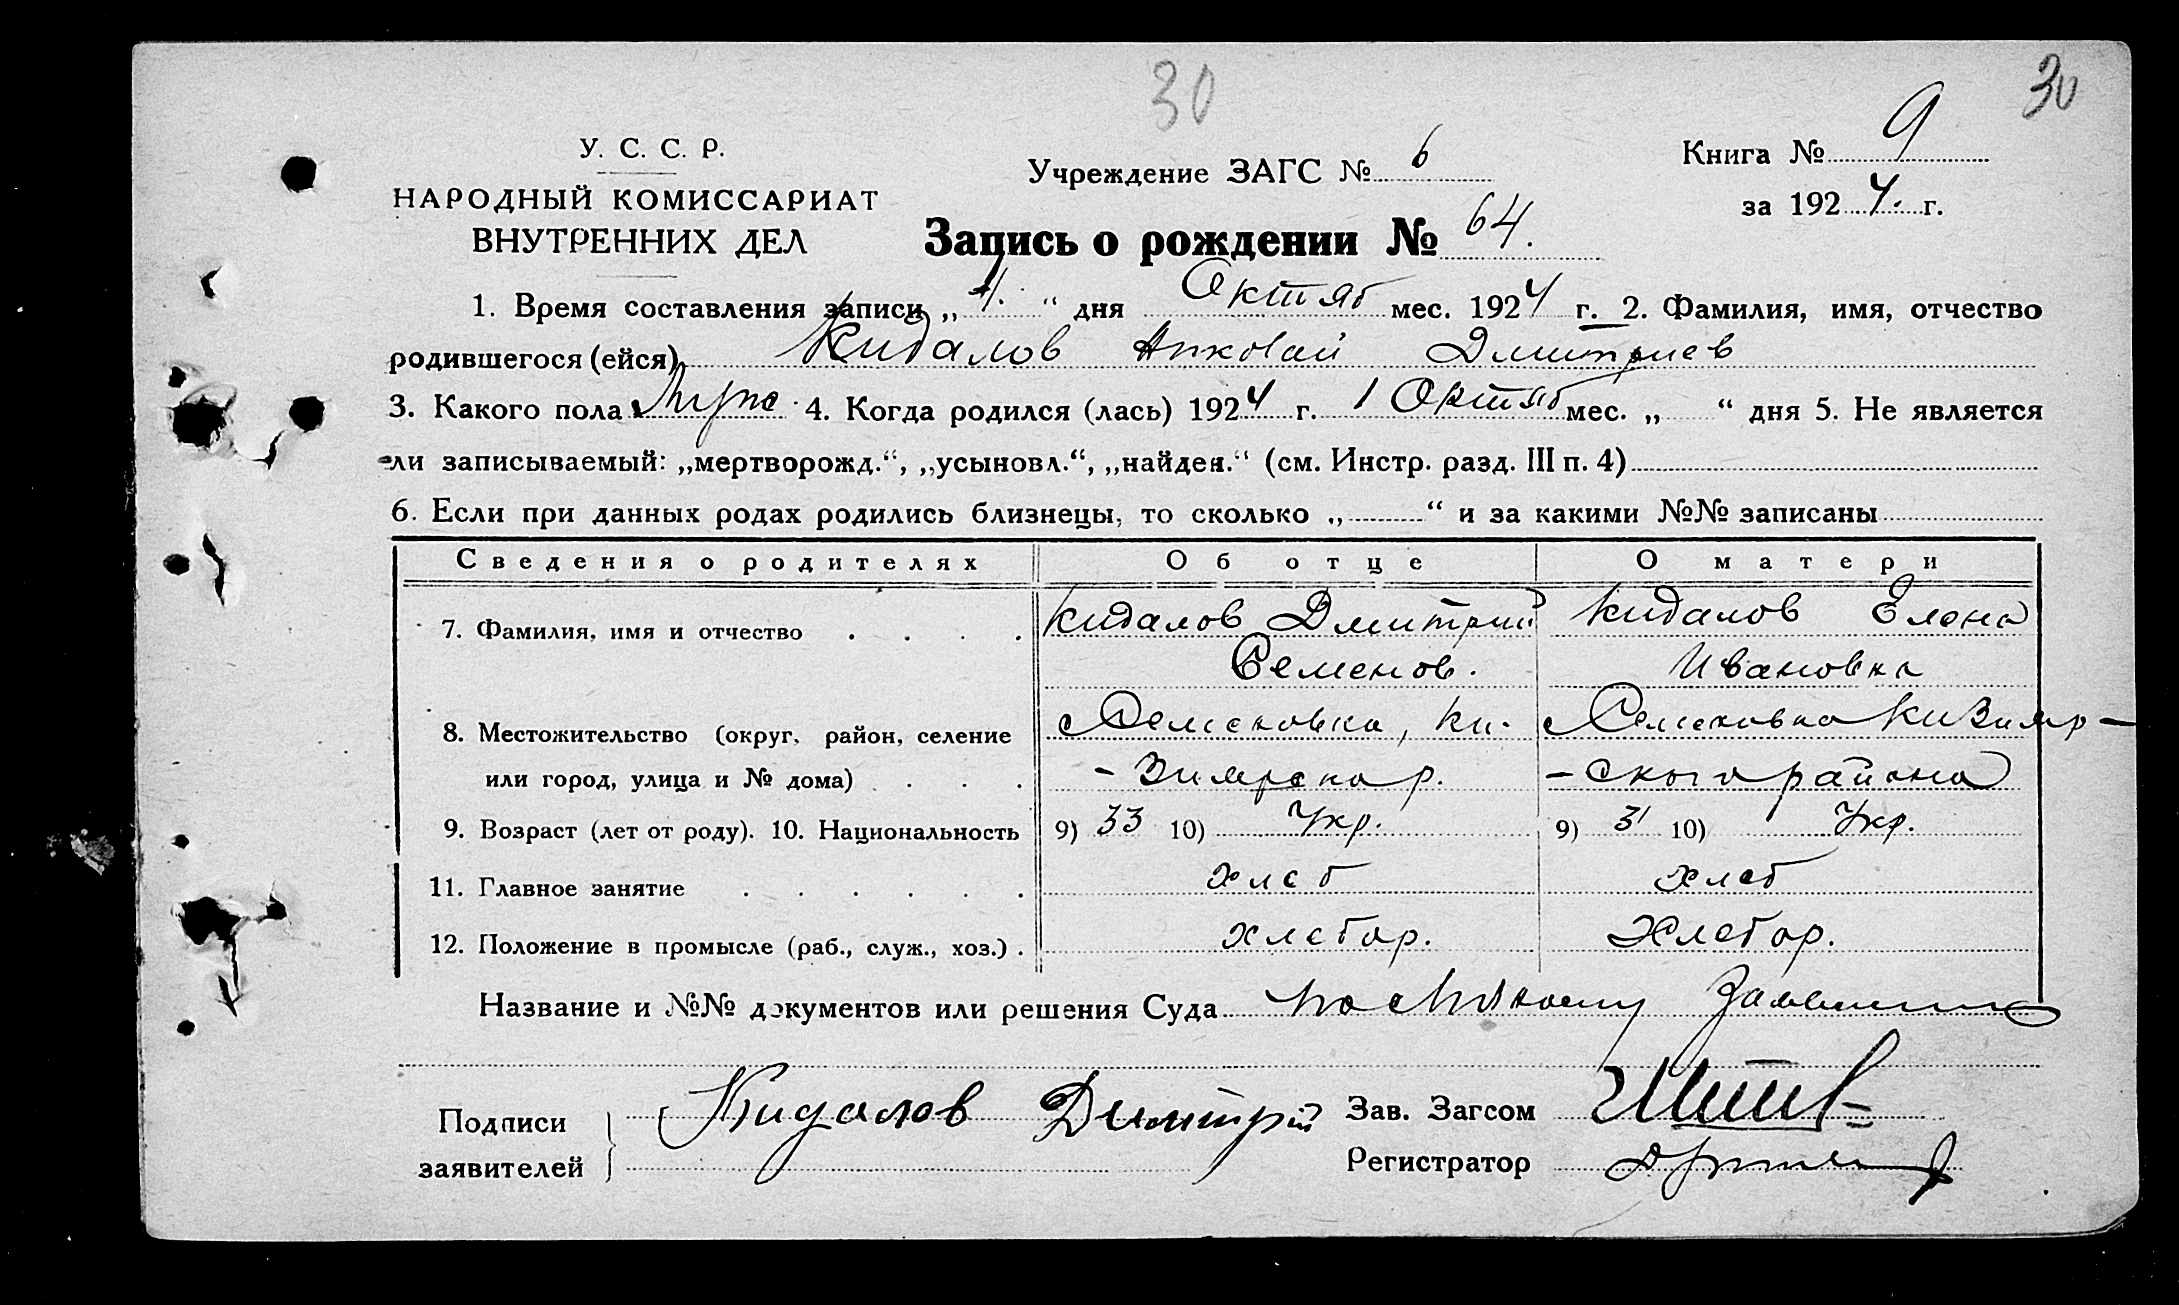 30
30
У. С. С. Р.
НАРОДНЫЙ КОМИССАРИАТ
ВНУТРЕННИХ ДЕЛ
Учреждение ЗАГС № 6
Книга № 9
за 1924. г.
Запись о рождении № 64.
1. Время составления записи „ 4. “ дня Октяб мес. 1924 г. 2. Фамилия, имя, отчество
родившегося (ейся) Кидалов Дмитриев
3. Какого пола Муж 4. Когда родился (лась) 1924 г. 1 Октяб мес. „ “ дня 5. Не является
ли записываемый: „мертворожд.“, „усыновл.“, „найден.“ (см. Инстр. разд. III п. 4)
6. Если при данных родах родились близнецы, то сколько „ “ и за какими №№ записаны
Сведения о родителях Об отце О матери
7. Фамилия, имя и отчество . . . . Кидалов Дмитрий Кидалов Елена
Семенов. Ивановна
8. Местожительство (округ, район, селение с Семеновка, Ки- с Семеновка Кизияр-
или город, улица и № дома) . . . . -зиярска р. -ского района
9. Возраст (лет от роду). 10. Национальность 9) 33 10) Укр. 9) 31 10) Укр.
11. Главное занятие . . . . . . хлеб хлеб
12. Положение в промысле (раб., служ., хоз.) . хлебор. Хлебор.
Название и №№ документов или решения Суда
Подписи
заявителей
Кидалов Димитрій
Зав. Загсом
Регистратор